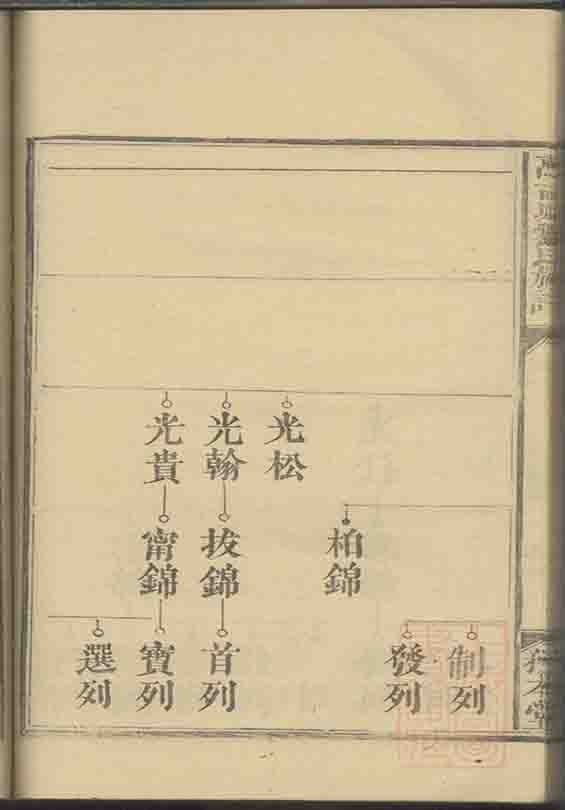 氏族譜
本堂
光松
光翰
光貴
柏錦
拔錦
甯錦
制列
發列
首列
寶列
選列